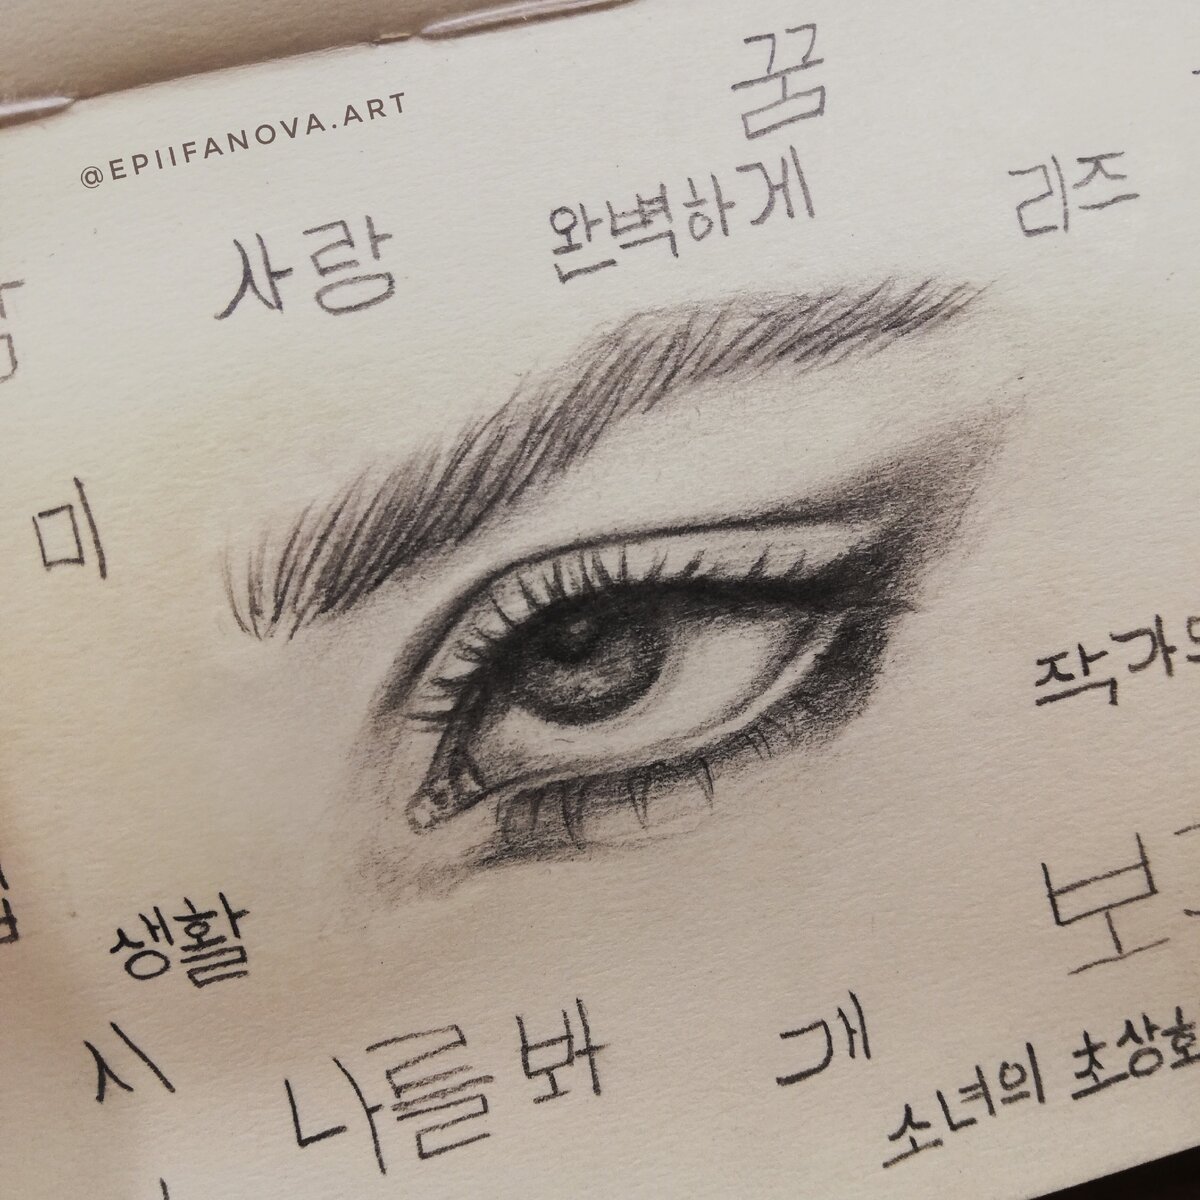 꿈
@EPIIFANOVA.ART
사랑
완벽하게
리즈
미
작가
생활
보
시
나를 봐
개
소녀의 초상화